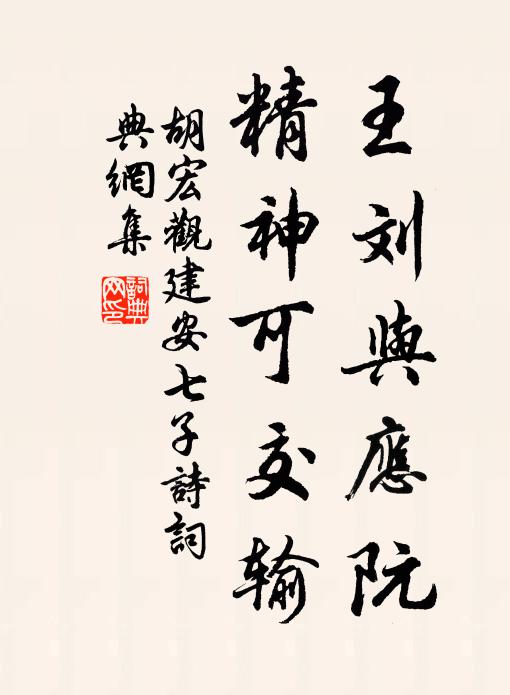 王刘與應阮
精神可交输
胡宏觀建安七子詩詞
典網集
詞典網印